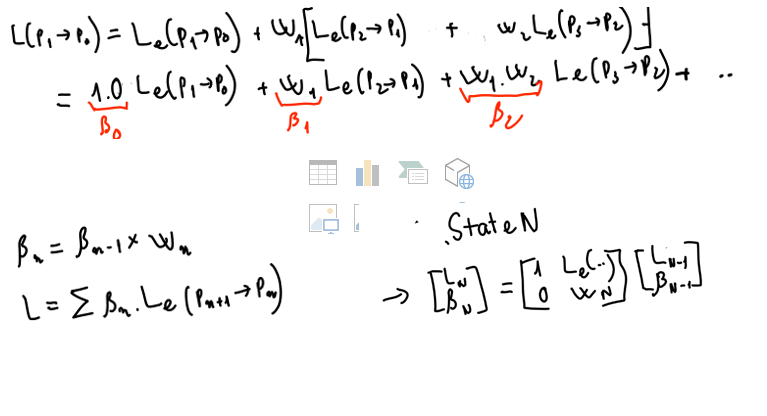 L(P₁→P₀) = Lₑ(P₁→P₀) + W₁[Lₑ(P₂→P₁) + w₂Lₑ(P₃→P₂)]
= 1.0 Lₑ(P₁→P₀) + W₁ Lₑ(P₂→P₁) + W₁.W₂ Lₑ(P₃→P₂) + ..
β₀ β₁ β₂
State N
βₙ = βₙ₋₁ × Wₙ
L = ∑ βₙ.Lₑ(Pₙ₊₁→Pₙ) → [L_N β_N] = [1 Lₑ(..) 0 W_N] [L_N-1 β_N-1]